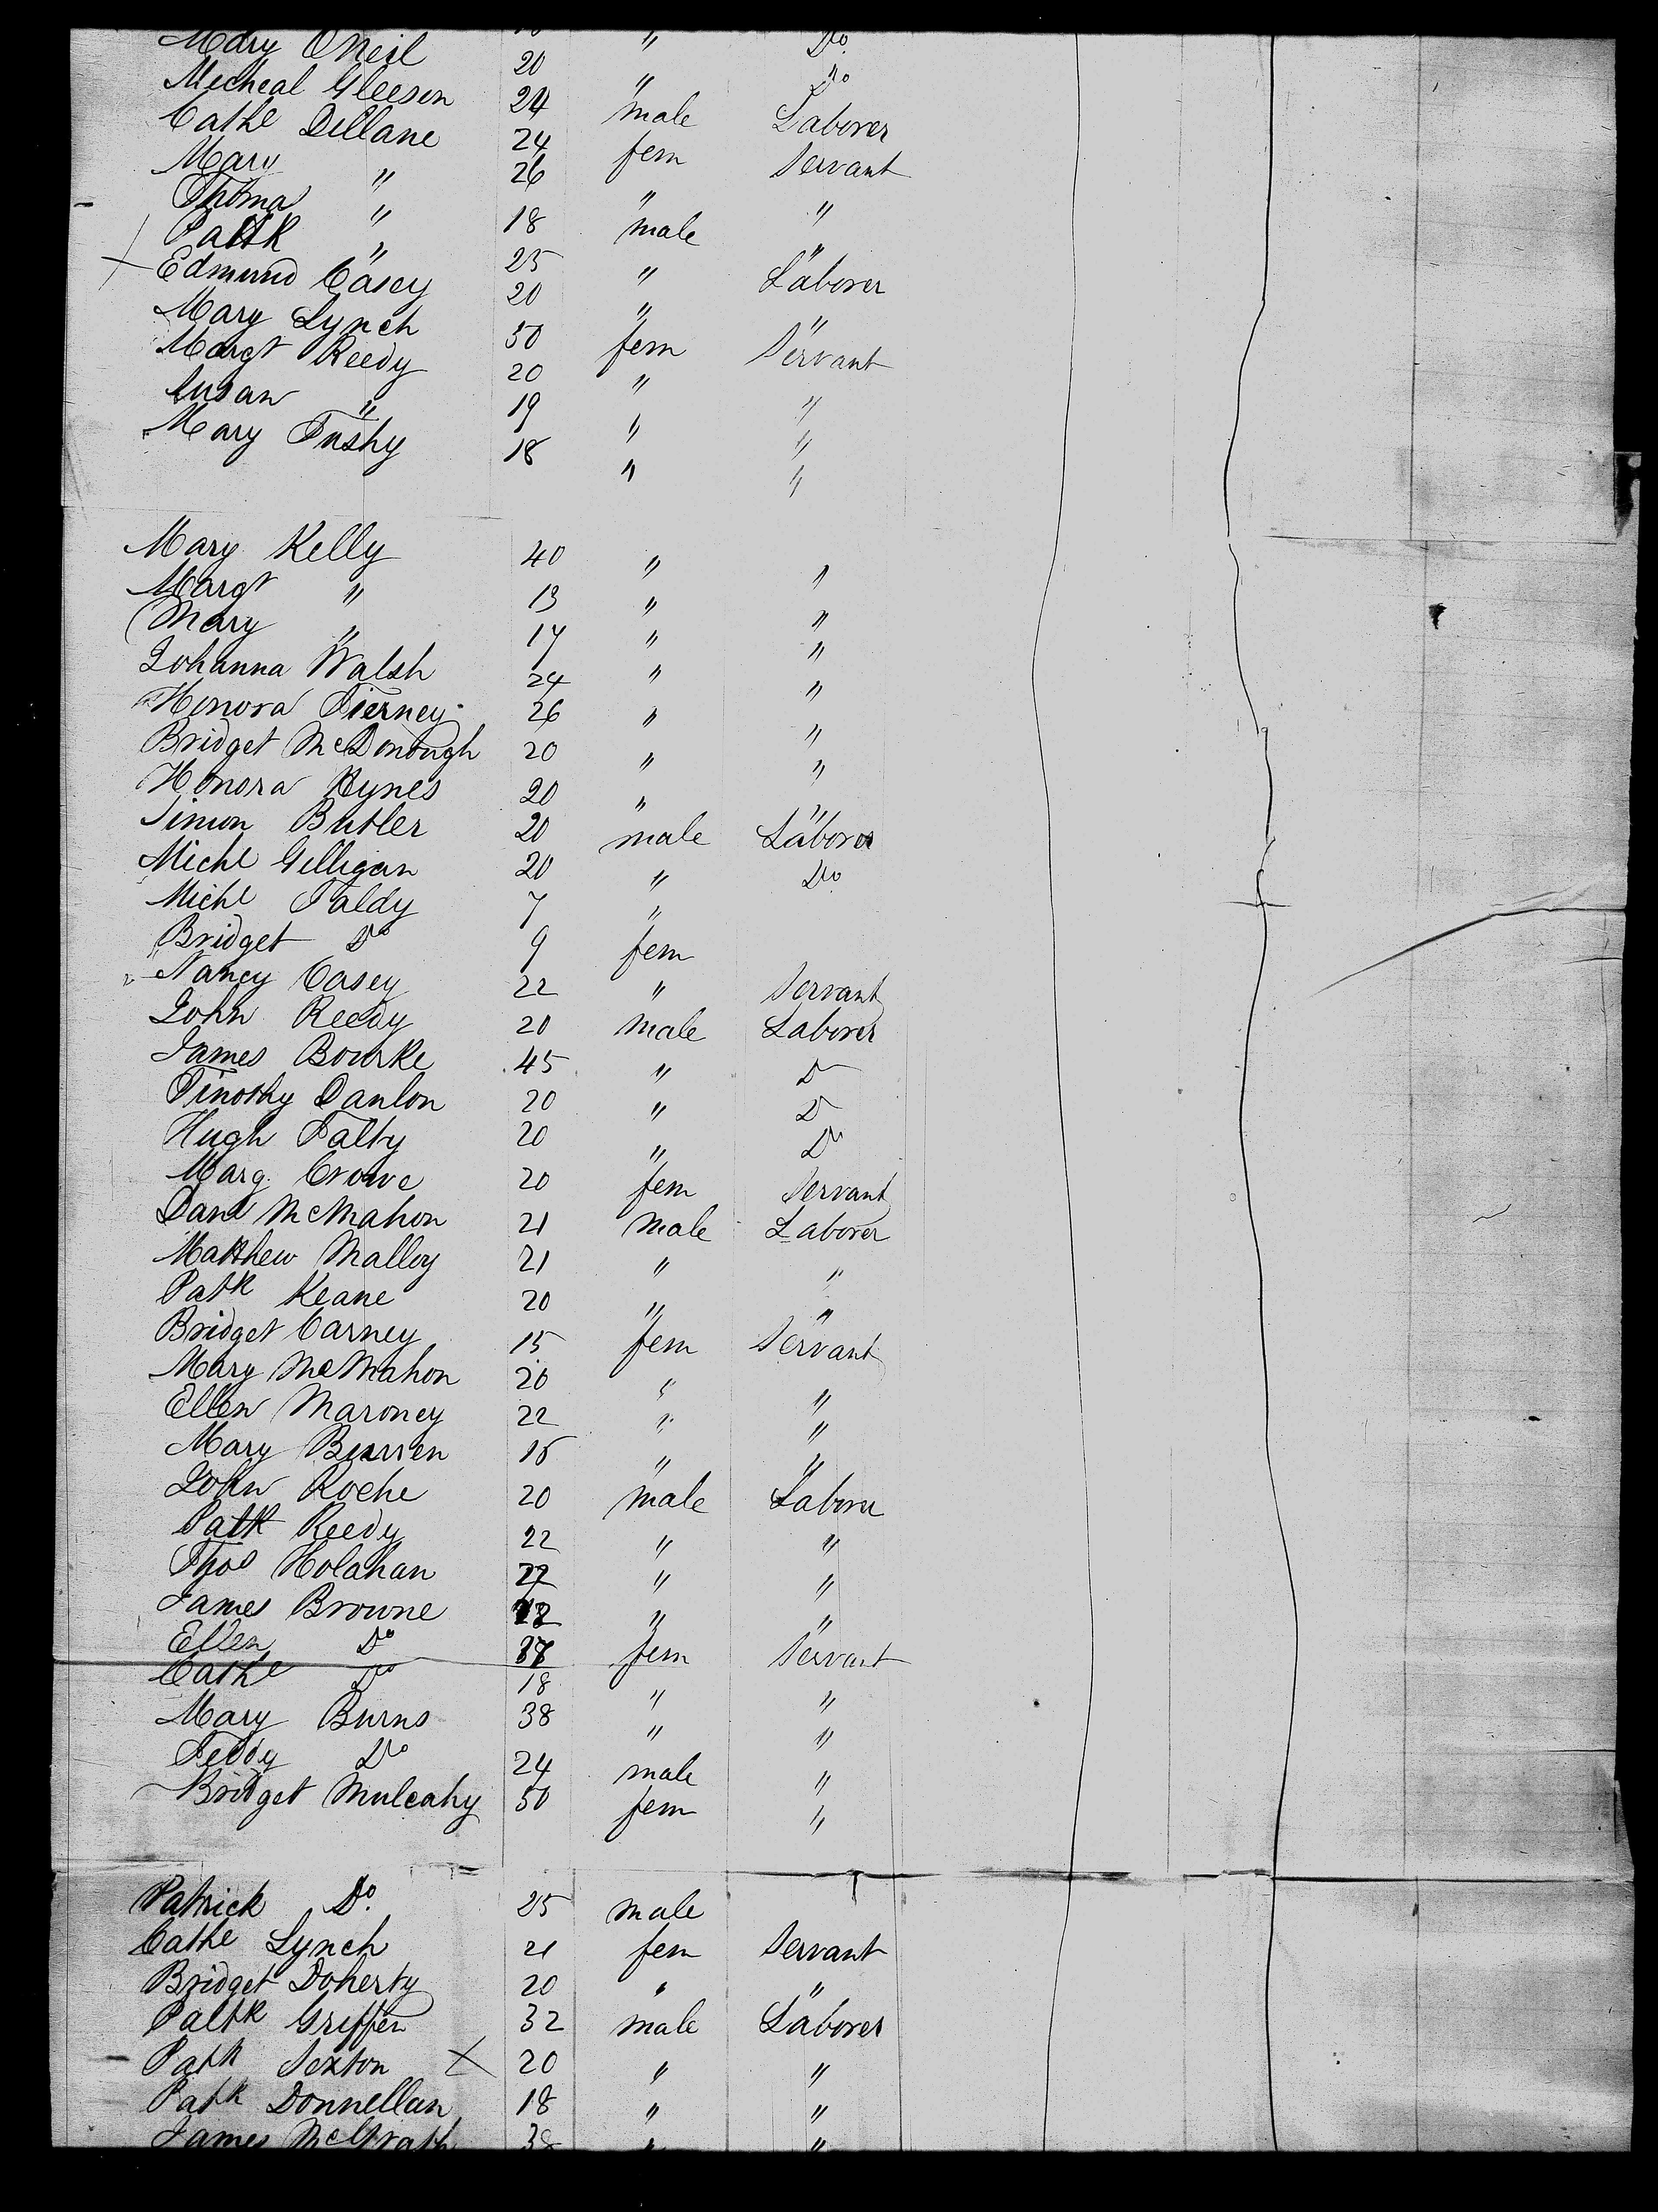 Mary ONeil 20 " Do
Micheal Gleeson 24 male Laborer
Cathe Dillane 24 fem Servant
Mary " 26 " "
Thoma " 18 male "
Pattk " 25 " Laborer
Edmund Casey 20 " "
Mary Lynch 50 fem Servant
Margt Reedy 20 " "
Susan " 19 " "
Mary Tushy 18 " "
Mary Kelly 40 " "
Margt " 13 " "
Mary " 17 " "
Johanna Walsh 24 " "
Honora Tierney 26 " "
Bridget McDonough 20 " "
Honora Hynes 20 " "
Simon Butler 20 male Laborer
Michl Gilligan 20 " Do
Michl Taldy 7 "
Bridget Do 9 fem
Nancy Casey 22 " Servant
John Reedy 20 male Laborer
James Bourke 45 " D
Timothy Danlon 20 " D
Hugh Talty 20 " Do
Marg. Crowe 20 fem Servant
Danl McMahon 21 male Laborer
Matthew Malloy 21 " "
Patk Keane 20 " "
Bridget Carney 15 fem Servant
Mary McMahon 20 " "
Ellen Maroney 22 " "
Mary Burren 15 " "
John Roche 20 male Laborer
Patk Reedy 22 " "
Thos Holahan 22 " "
James Browne " "
Ellen Do 37 fem Servant
Cathe Do 18 " "
Mary Burns 38 " "
Teddy Do 24 male "
Bridget Mulcahy 50 fem "
Patrick Do. 25 male
Cathe Lynch 21 fem Servant
Bridget Doherty 20 " "
Pattk Griffen 32 male Laborer
Patk Sexton X 20 " "
Patk Donnellan 18 " "
James McGrath 38 " "